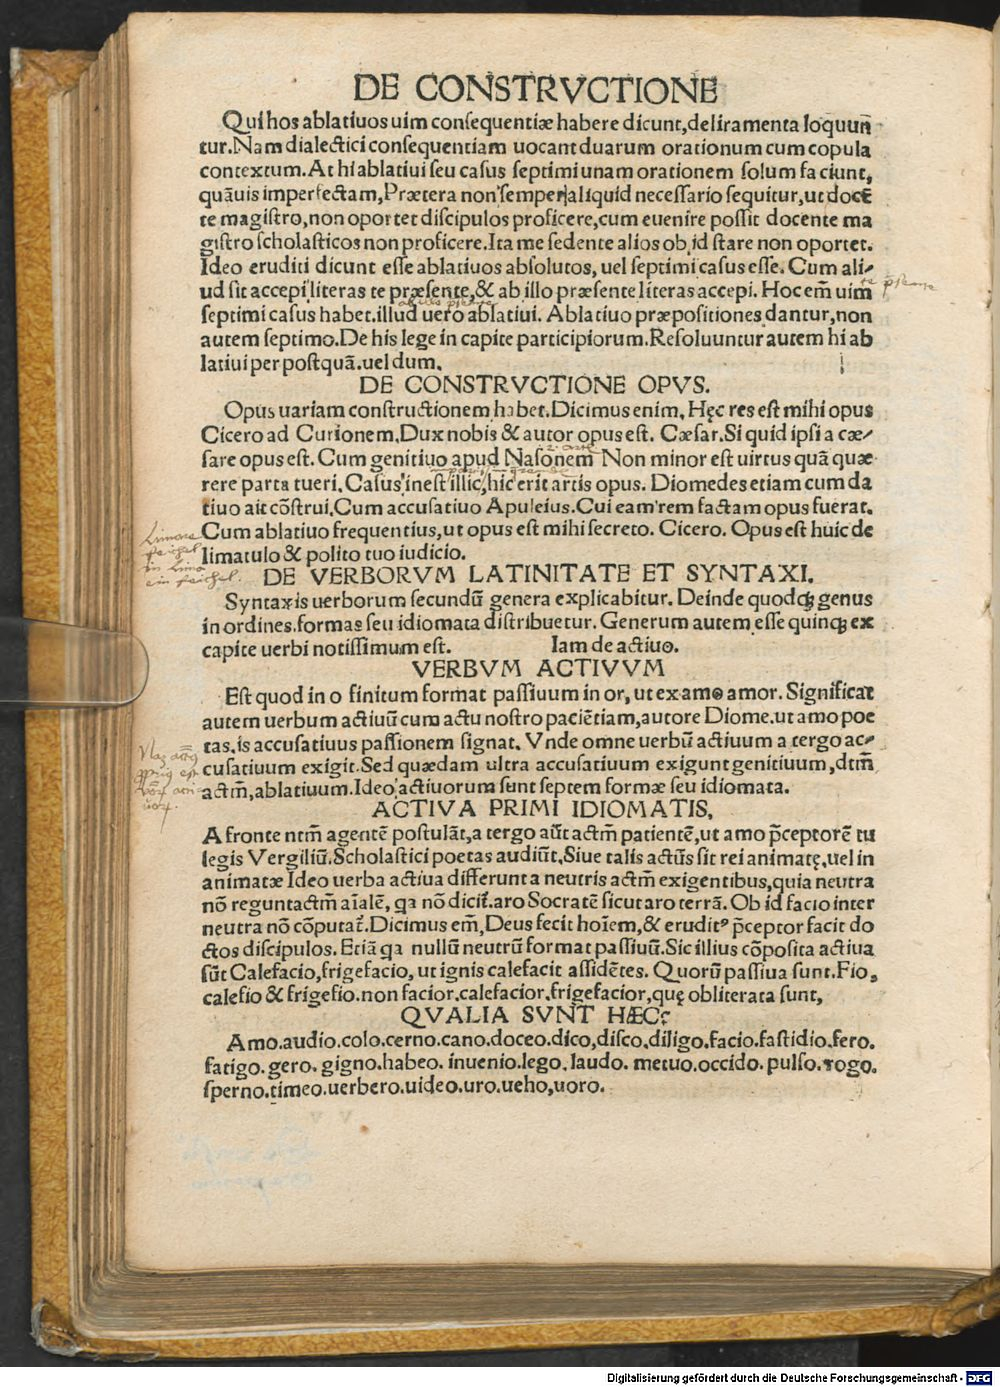 DE CONSTRVCTIONE
Qui hos ablatiuos uim consequentiæ habere dicunt, deliramenta loquun
tur. Nam dialectici consequentiam uocant duarum orationum cum copula
contextum. At hi ablatiui seu casus septimi unam orationem solum faciunt,
quãuis imperfectam, Prætera non semper aliquid necessario sequitur, ut docẽ
te magistro, non oportet discipulos proficere, cum euenire possit docente ma
gistro scholasticos non proficere. Ita me sedente alios ob id stare non oportet.
Ideo eruditi dicunt esse ablatiuos absolutos, uel septimi casus esse. Cum ali⸗
ud sit accepi literas te præsente, & ab illo præsente literas accepi. Hoc em̃ uim
septimi casus habet. illud uero ablatiui. Ablatiuo præpositiones dantur, non
autem septimo. De his lege in capite participiorum. Resoluuntur autem hi ab
latiui per postquã. uel dum.
DE CONSTRVCTIONE OPVS.
Opus uariam constructionem habet. Dicimus enim, Hęc res est mihi opus
Cicero ad Curionem. Dux nobis & autor opus est. Cæsar. Si quid ipsi a cæ⸗
sare opus est. Cum genitiuo apud Nasonem Non minor est uirtus quã quæ
rere parta tueri. Casus inest illic, hic erit artis opus. Diomedes etiam cum da
tiuo ait cõstrui. Cum accusatiuo Apuleius. Cui eam rem factam opus fuerat.
Cum ablatiuo frequentius, ut opus est mihi secreto. Cicero. Opus est huic de
limatulo & polito tuo iudicio.
DE VERBORVM LATINITATE ET SYNTAXI.
Syntaxis uerborum secundũ genera explicabitur. Deinde quodqꝫ genus
in ordines. formas seu idiomata distribuetur. Generum autem esse quinqꝫ ex
capite uerbi notissimum est. Iam de actiuo.
VERBVM ACTIVVM
Est quod in o finitum format passiuum in or, ut ex amo amor. Significat
autem uerbum actiuũ cum actu nostro paciẽtiam, autore Diome. ut amo poe
tas. is accusatiuus passionem signat. Vnde omne uerbũ actiuum a tergo ac⸗
cusatiuum exigit. Sed quædam ultra accusatiuum exigunt genitiuum, dtm̃
actm̃, ablatiuum. Ideo actiuorum sunt septem formæ seu idiomata.
ACTIVA PRIMI IDIOMATIS.
A fronte ntm̃ agentẽ postulãt, a tergo aũt actm̃ patientẽ, ut amo p̃ceptorẽ tu
legis Vergiliũ. Scholastici poetas audiũt, Siue talis actũs sit rei animatę. uel in
animatæ Ideo uerba actiua differunt a neutris actm̃ exigentibus, quia neutra
nõ regunt actm̃ aĩalẽ, qa nõ dicit̃. aro Socratẽ sicut aro terrã. Ob id facio inter
neutra nõ cõputat̃. Dicimus em̃, Deus fecit hoĩem, & erudit⁹ p̃ceptor facit do
ctos discipulos. Etiã qa nullũ neutrũ format passiuũ. Sic illius cõposita actiua
sũt Calefacio, frigefacio, ut ignis calefacit assidẽtes. Quorũ passiua sunt. Fio,
calefio & frigefio. non facior. calefacior. frigefacior, quę obliterata sunt,
QVALIA SVNT HÆC:
Amo. audio. colo. cerno. cano. doceo. dico, disco. diligo. facio. fastidio. fero.
fatigo. gero. gigno. habeo. inuenio. lego. laudo. metuo. occido. pulso. rogo.
sperno. timeo. uerbero. uideo. uro. ueho, uoro.
Digitalisierung gefördert durch die Deutsche Forschungsgemeinschaft - DFG